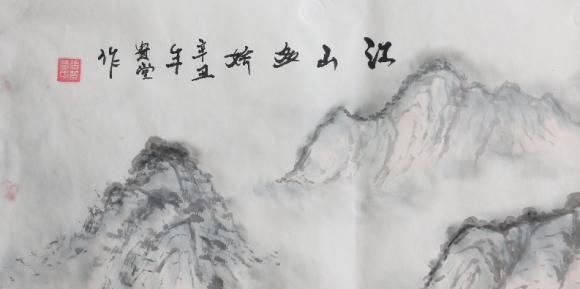 江山多娇
辛丑年
堂作